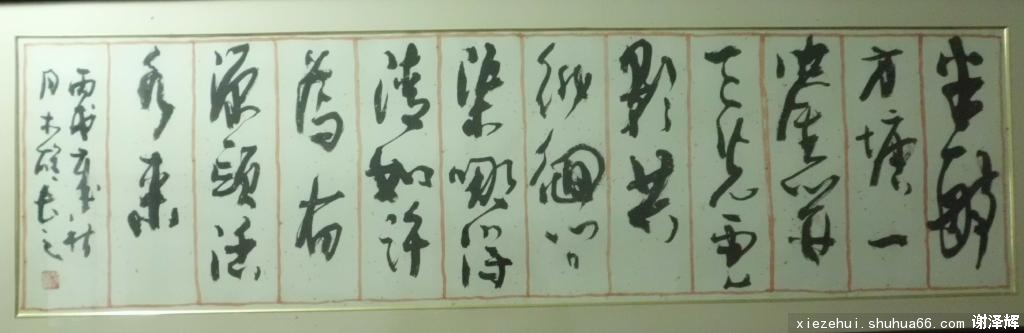 半畝
方塘一
鑒開
天光雲
影共
徘徊問
渠哪得
清如許
為有
源頭活
水来
丙戌
xiezehui.shuhua66.com 谢泽辉